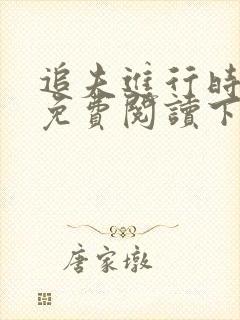 追夫進行時
免費閱讀下
唐家墩